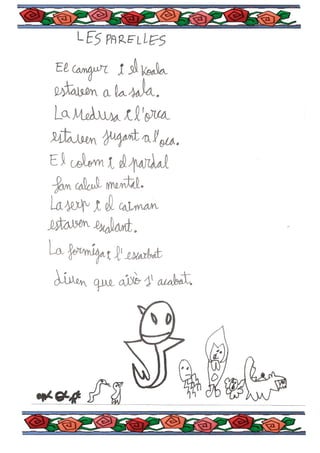 LES PARELLES
El cangur i el koala
estaven a la sala.
La Medusa i l'orca
estaven jugant a l'oca.
El colom i el pardal
fan calcul mental.
La serp i el caiman
estaven escalant.
La formiga i l'escarbat
diuen que això s'acabat.